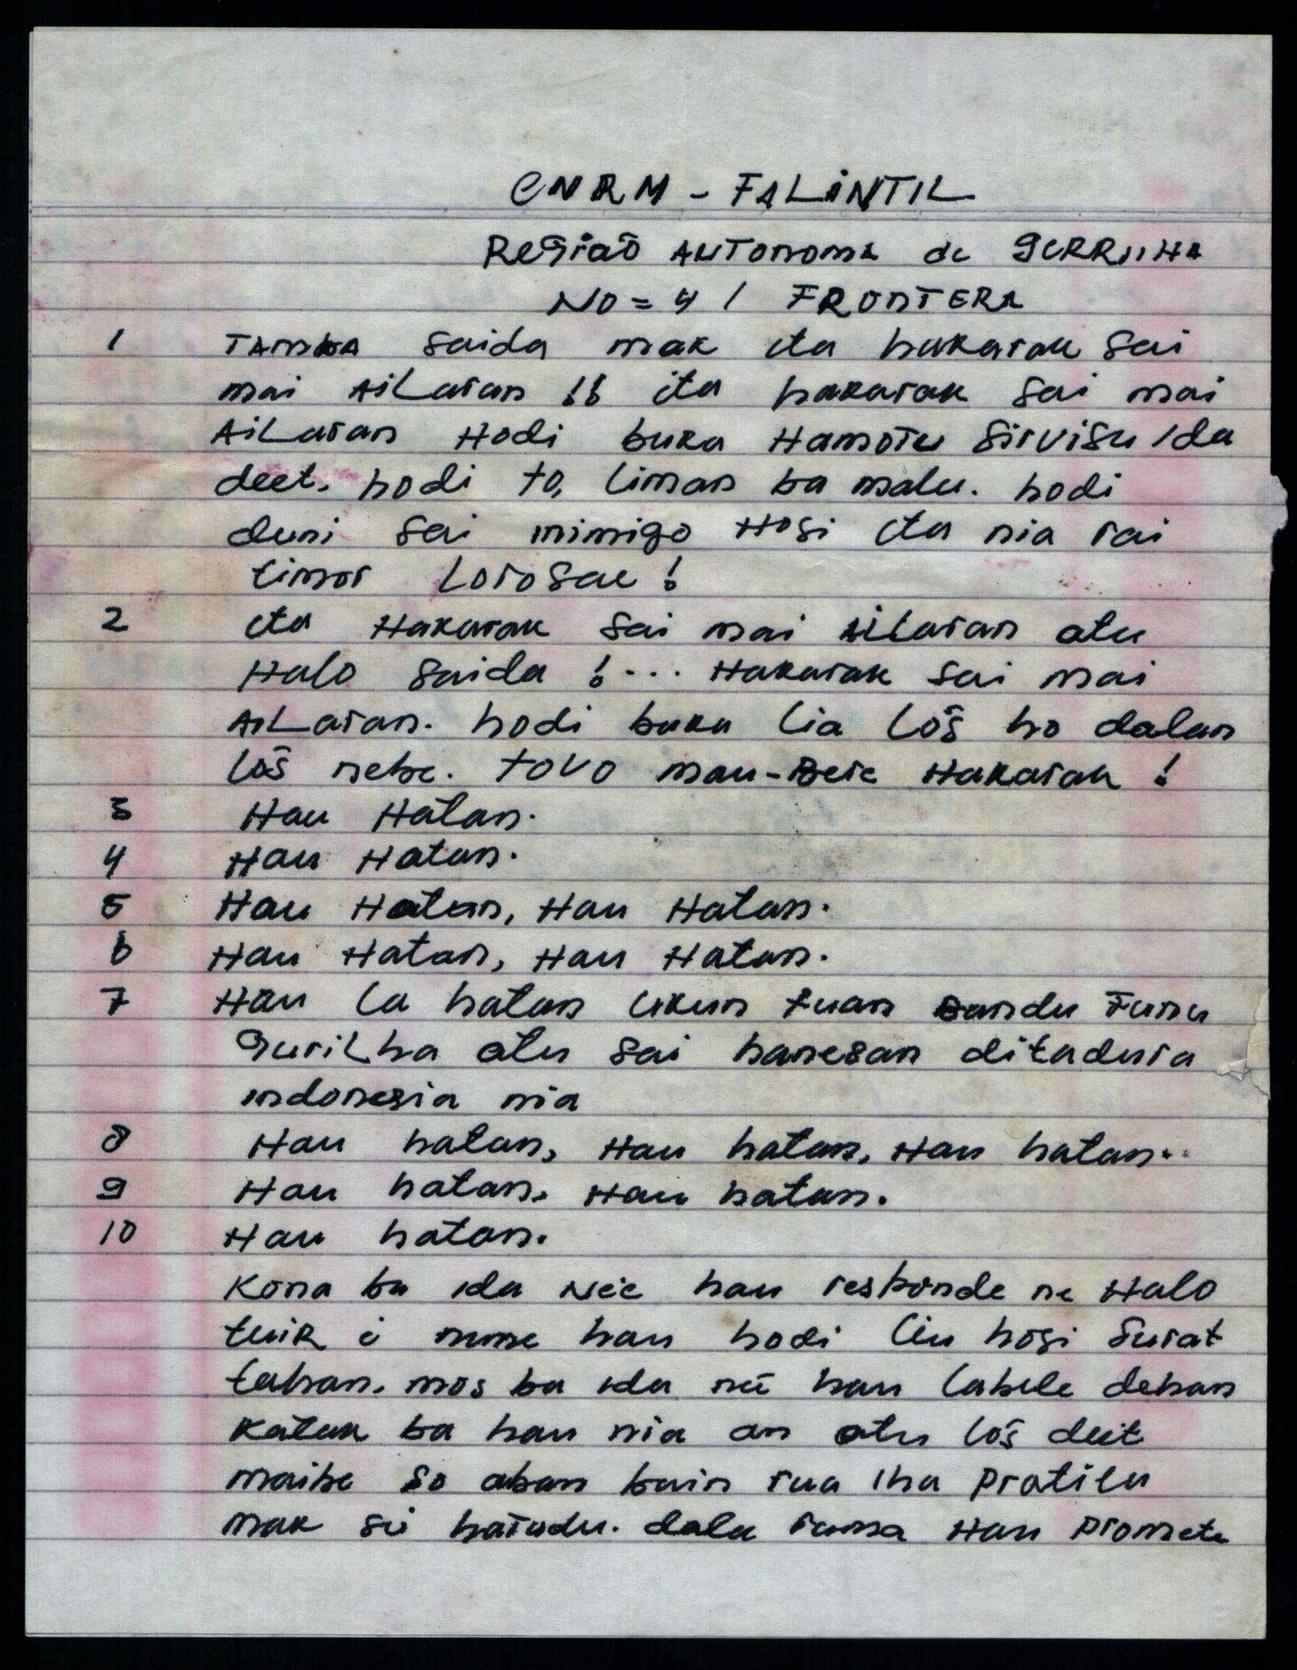 CNRM - FALiNTIL
Região AUTonoma de gERRiLHA
NO = 4 / FRONTERA
1 TAmba saida mak ita hakarak sai
mai AiLaran !! ita hakarak sai mai
AiLaran Hodi buka Hamotu sirvisu ida
deet. hodi to, liman ba malu. hodi
duni sai inimigo Hosi ita nia rai
timor Lorosae !
2 ita Hakarak sai mai AiLaran atu
Halo saida !... Hakarak sai mai
AiLaran. hodi buka lia Lõs ho dalan
lõs nebe. Povo mau-Bere Hakarak !
3 Hau Hatan.
4 Hau Hatan.
5 Hau Hatan, Hau Hatan.
6 Hau Hatan, Hau Hatan.
7 Hau la hatan ukun tuan bandu Funu
guriLha atu sai hanesan ditadura
indonesia nia
8 Hau hatan, Hau hatan, Hau hatan.
9 Hau hatan. Hau hatan.
10 Hau hatan.
Kona ba ida Neé hau responde ne Halo
tuir i hau hodi liu hosi surat
tahan. mos ba ida né hau labele dehan
Katak ba hau nia an atu lõs deit
maibe so aban bain rua iha pratiku
mak sei hatudu. dala ruma Hau promete